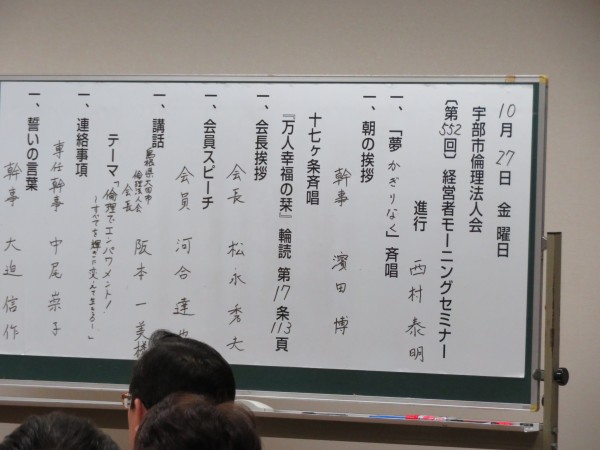 10月27日 金曜日
宇部市倫理法人会
〔第552回〕経営者モーニングセミナー
進行 西村泰明
一、「夢かぎりなく」斉唱
一、朝の挨拶
幹事 濱田博
十七ヶ条斉唱
『万人幸福の栞』輪読 第17条113頁
一、会長挨拶
会長 松永秀夫
一、会員スピーチ
会員 河合達也
一、講話
島根県大田市
倫理法人会
会長 阪本一美様
テーマ「倫理でエンパワメント!
~すべてを輝きに変えて生きる~」
一、連絡事項
専任幹事 中尾崇子
一、誓いの言葉
幹事 大迫信作